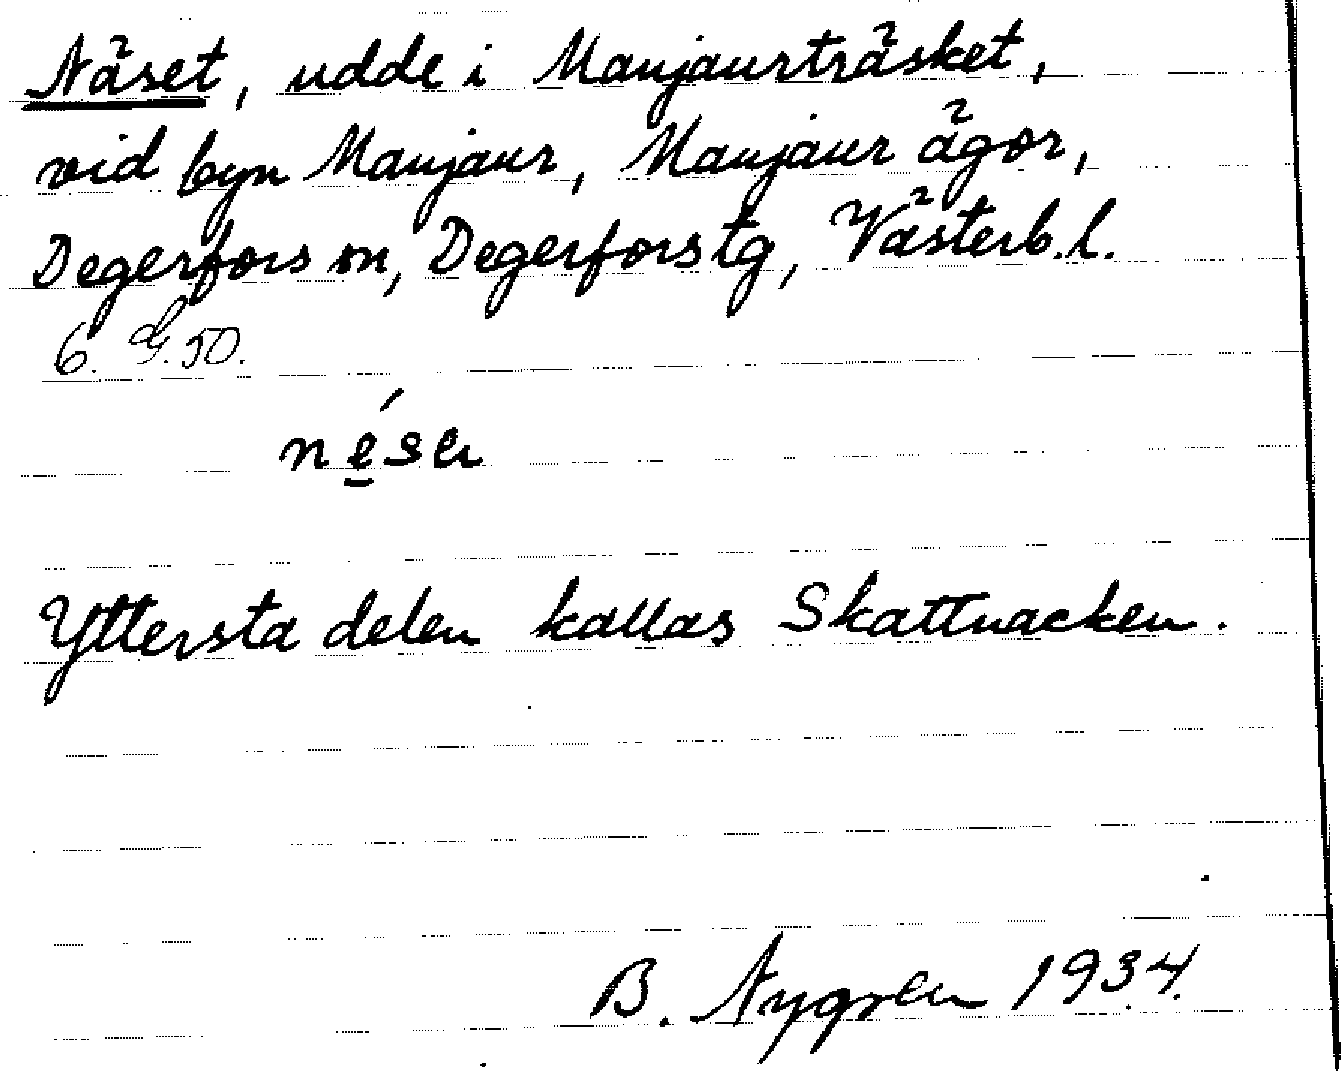 Näset, udde i Manjaurträsket,
vid byn Manjaur, Manjaur ägor,
Degerfors sn, Degerfors tg, Västerb. l.
6. G. 50.
Yttersta delen kallas Skattnacken.
B. Nygren 1934.